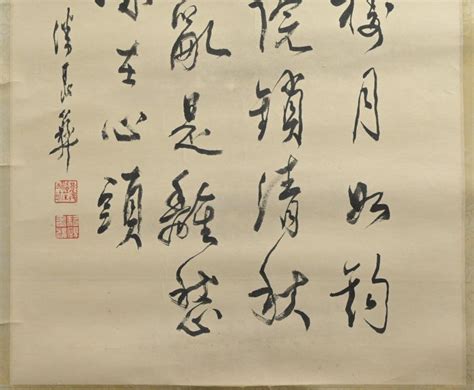 樓月如鉤
院鎖清秋
亂是離愁
味在心頭